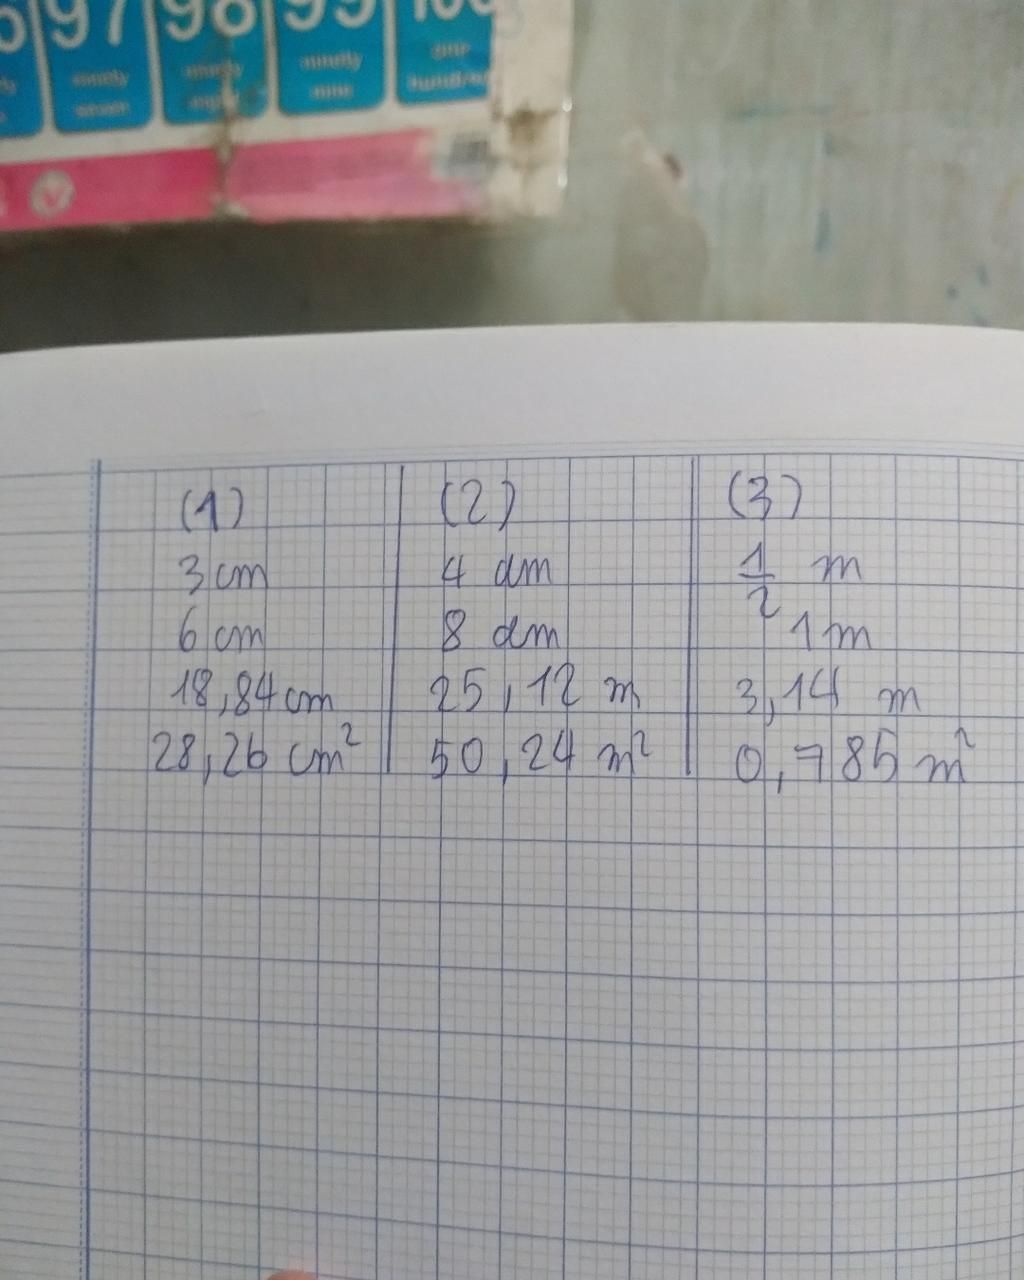 97 98 99 100
ninety ninety ninety one
seven eight nine hundred
(1) (2) (3)
3 cm 4 dm 1/2 m
6 cm 8 dm 1 m
18,84 cm 25,12 m 3,14 m
28,26 cm² 50,24 m² 0,785 m²